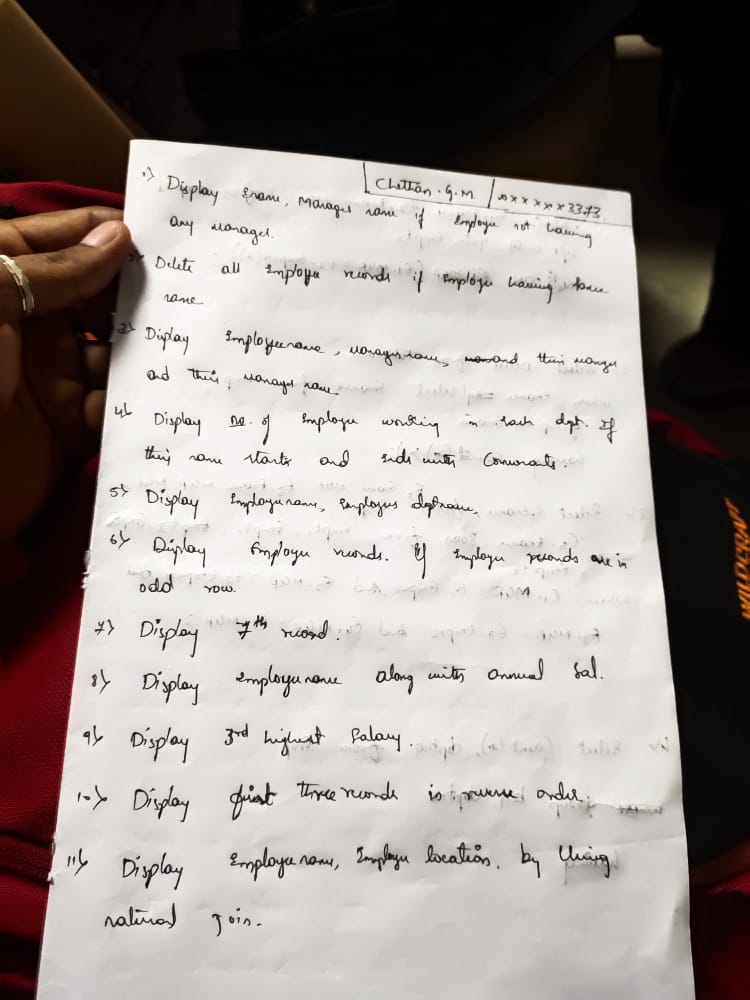 Chethan.G.M | xxxxxx3373
1) Display Ename, Manager name if Employee not having
any manager.
2) Delete all Employee records if Employee having same
name
3) Display Employeename, managername, and their manager
and their manager name
4) Display no. of Employee working in each dpt. If
their name starts and ends with Consonants.
5) Display Employeename, Employees dptname.
6) Display Employee records. If Employee records are in
odd row.
7) Display 7th record.
8) Display employeename along with annual sal.
9) Display 3rd highest Salary.
10) Display first three records in reverse order.
11) Display Employeename, Employee location, by Using
natural Join.